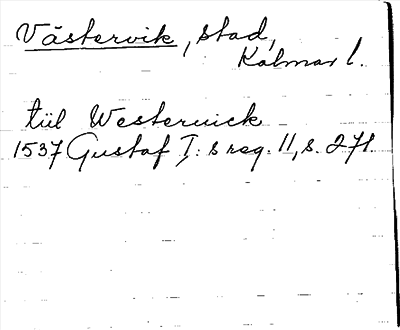 Västervik, stad,
Kalmar l.
tiil Westeruick
1537 Gustaf I: s reg. 11, s. 271.